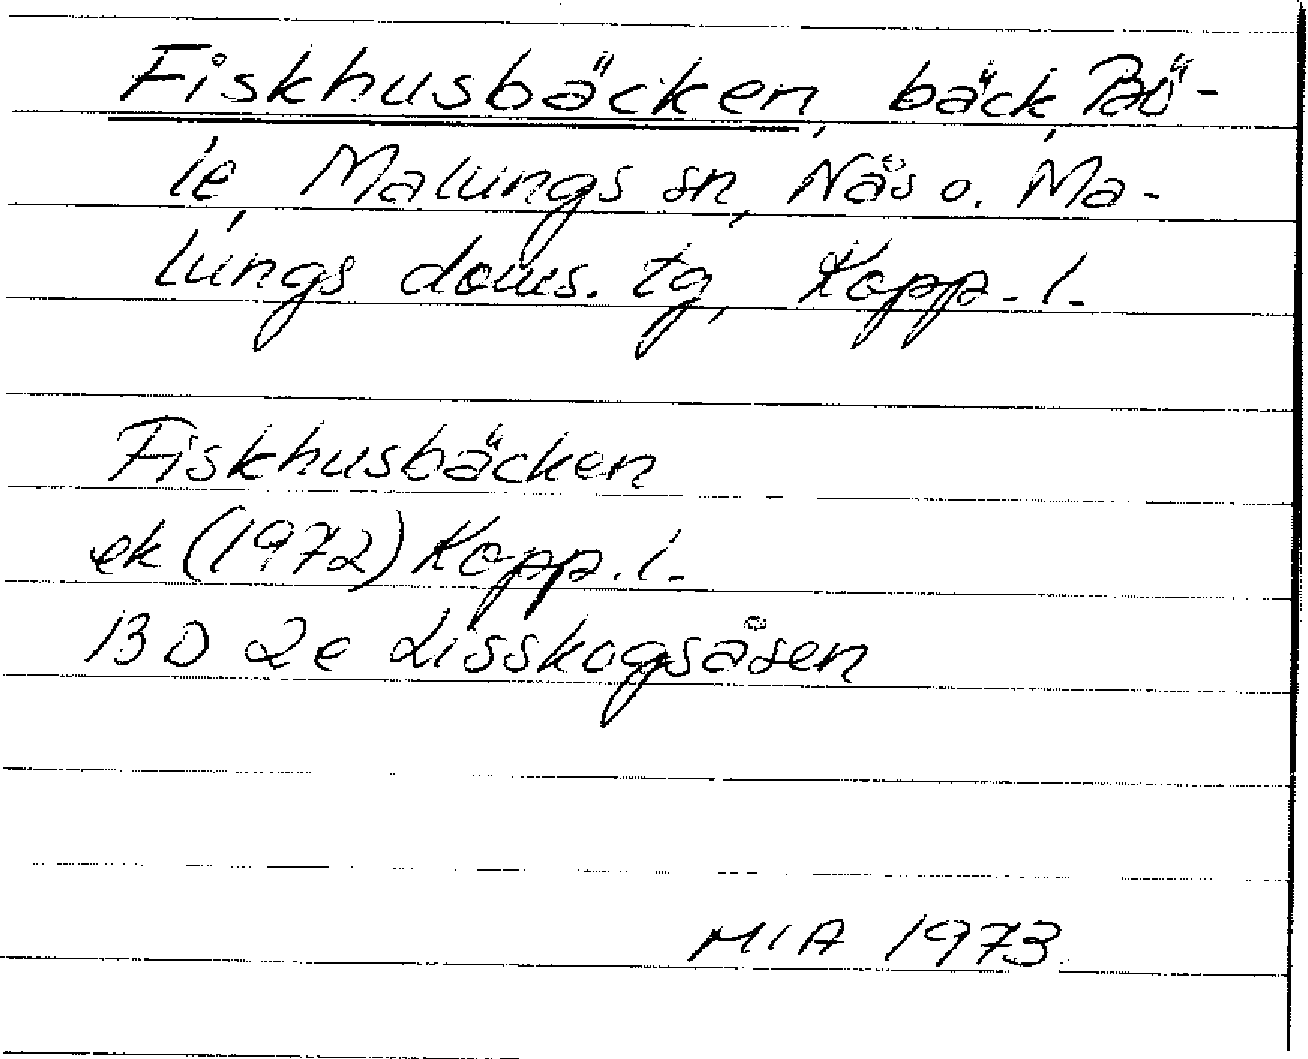 Fiskhusbäcken, bäck, Bö-
le, Malungs sn, Näs o. Ma-
lungs doms. tg, Kopp. l.
Fiskhusbäcken
ek (1972) Kopp. l.
13 D 2e Lisskogsåsen
MIA 1973